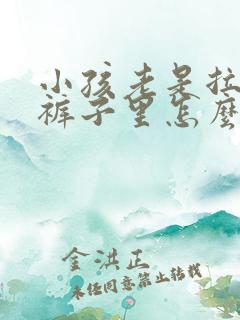 小孩老是拉
裤子里怎麽
金洪正
未经同意禁止转载